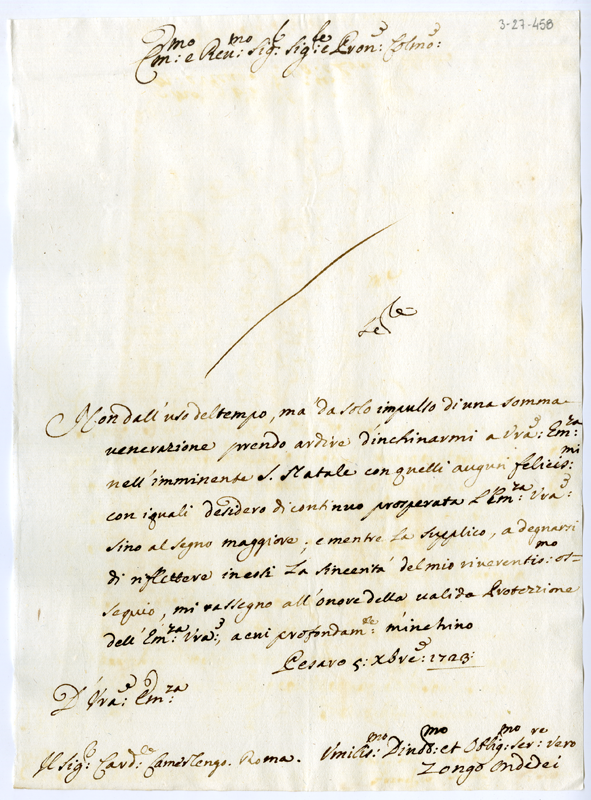 3-27-458
Em:mo e Rev:mo Sig:r Sig:re e Pron:e Colmo:
Non dall' uso del tempo, ma' da solo impulso di una somma
venerazione prendo ardire d'inchinarmi a Vra: Em:za
nell' imminente S. Natale con quelli auguri felicis:mi
con i quali desidero di continuo prosperata L'Em:za Vra:
sino al segno maggiore; e mentre La supplico, a degnarsi
di riflettere in essi La sincerità del mio riverentis:mo os=
sequio, mi rassegno all' onore della valida Protezzione
dell' Em:za Vra:, a cui profondam:te m'inchino
Pesaro 5: Xbre: 1723:
D' Vra: Em:za
Il Sig:r Card:le Camerlengo. Roma.
Vmilis:mo Divot:mo et Oblig:mo Ser:re vero
Zongo Ondedei